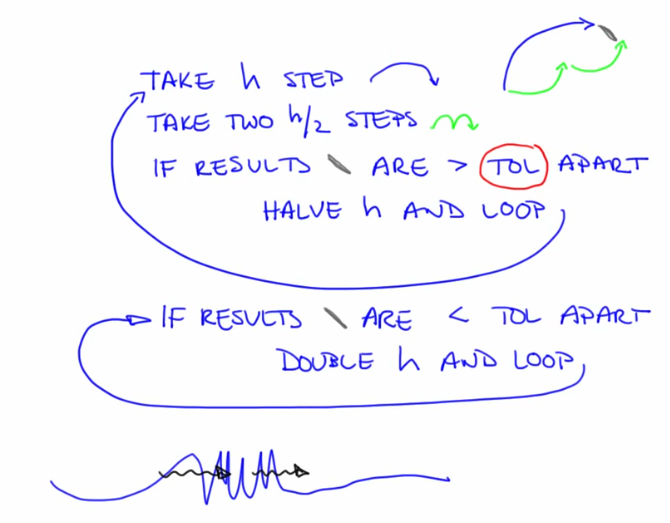 TAKE h STEP
TAKE TWO h/2 STEPS
IF RESULTS ARE > TOL APART
HALVE h AND LOOP
IF RESULTS ARE < TOL APART
DOUBLE h AND LOOP